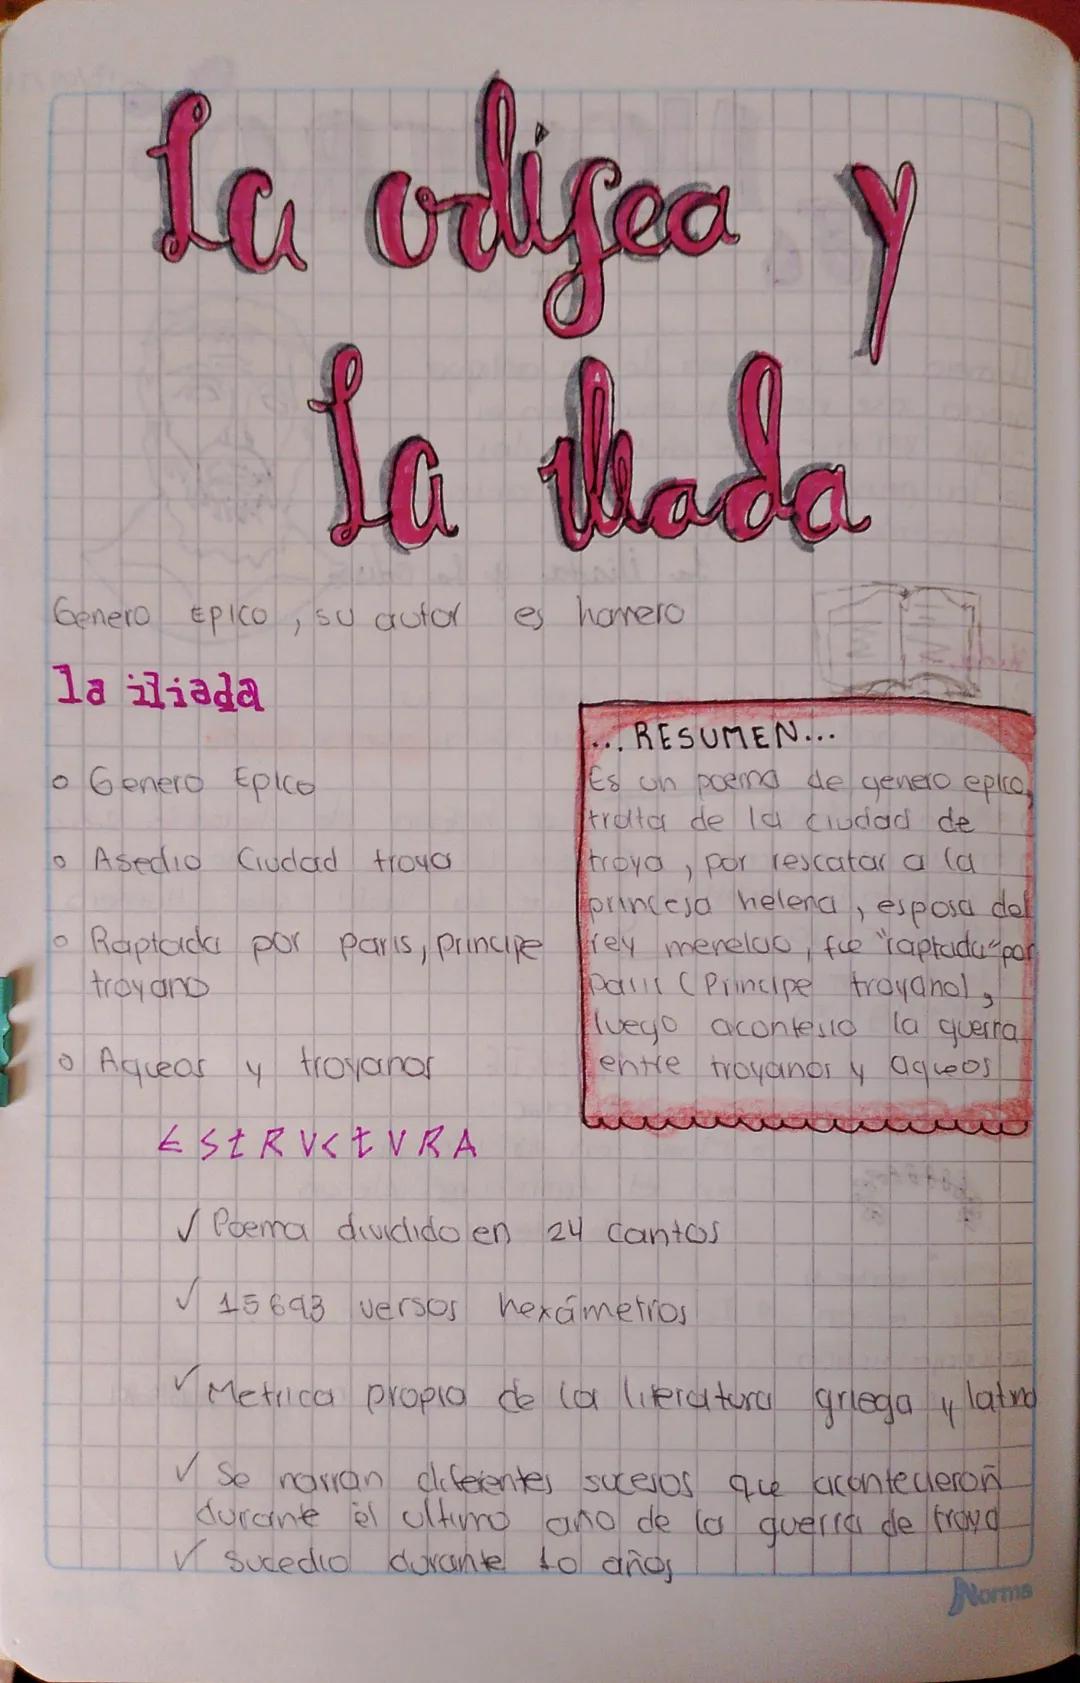 La odisea y
La Iliada
Genero Epico, su autor es homero
la iliada
Genero Epico
Asedio Ciudad troya
Raptada por paris, principe
troyano
Aqueos y troyanos
... RESUMEN...
Es un poema de genero epico,
trata de la ciudad de
troya, por rescatar a la
princesa helena, esposa del
rey menelao, fue "raptada" por
paris (Principe troyano),
luego acontesio la guerra
entre troyanos y aqueos
EStRUCtURA
✓ Poema dividido en 24 cantos
✓ 15693 versos hexámetros
✓ Metrica propia de la literatura griega y latina
✓ Se narran diferentes sucesos que acontecieron
durante el ultimo año de la guerra de troya
✓ Sucedio durante 10 años
Norma